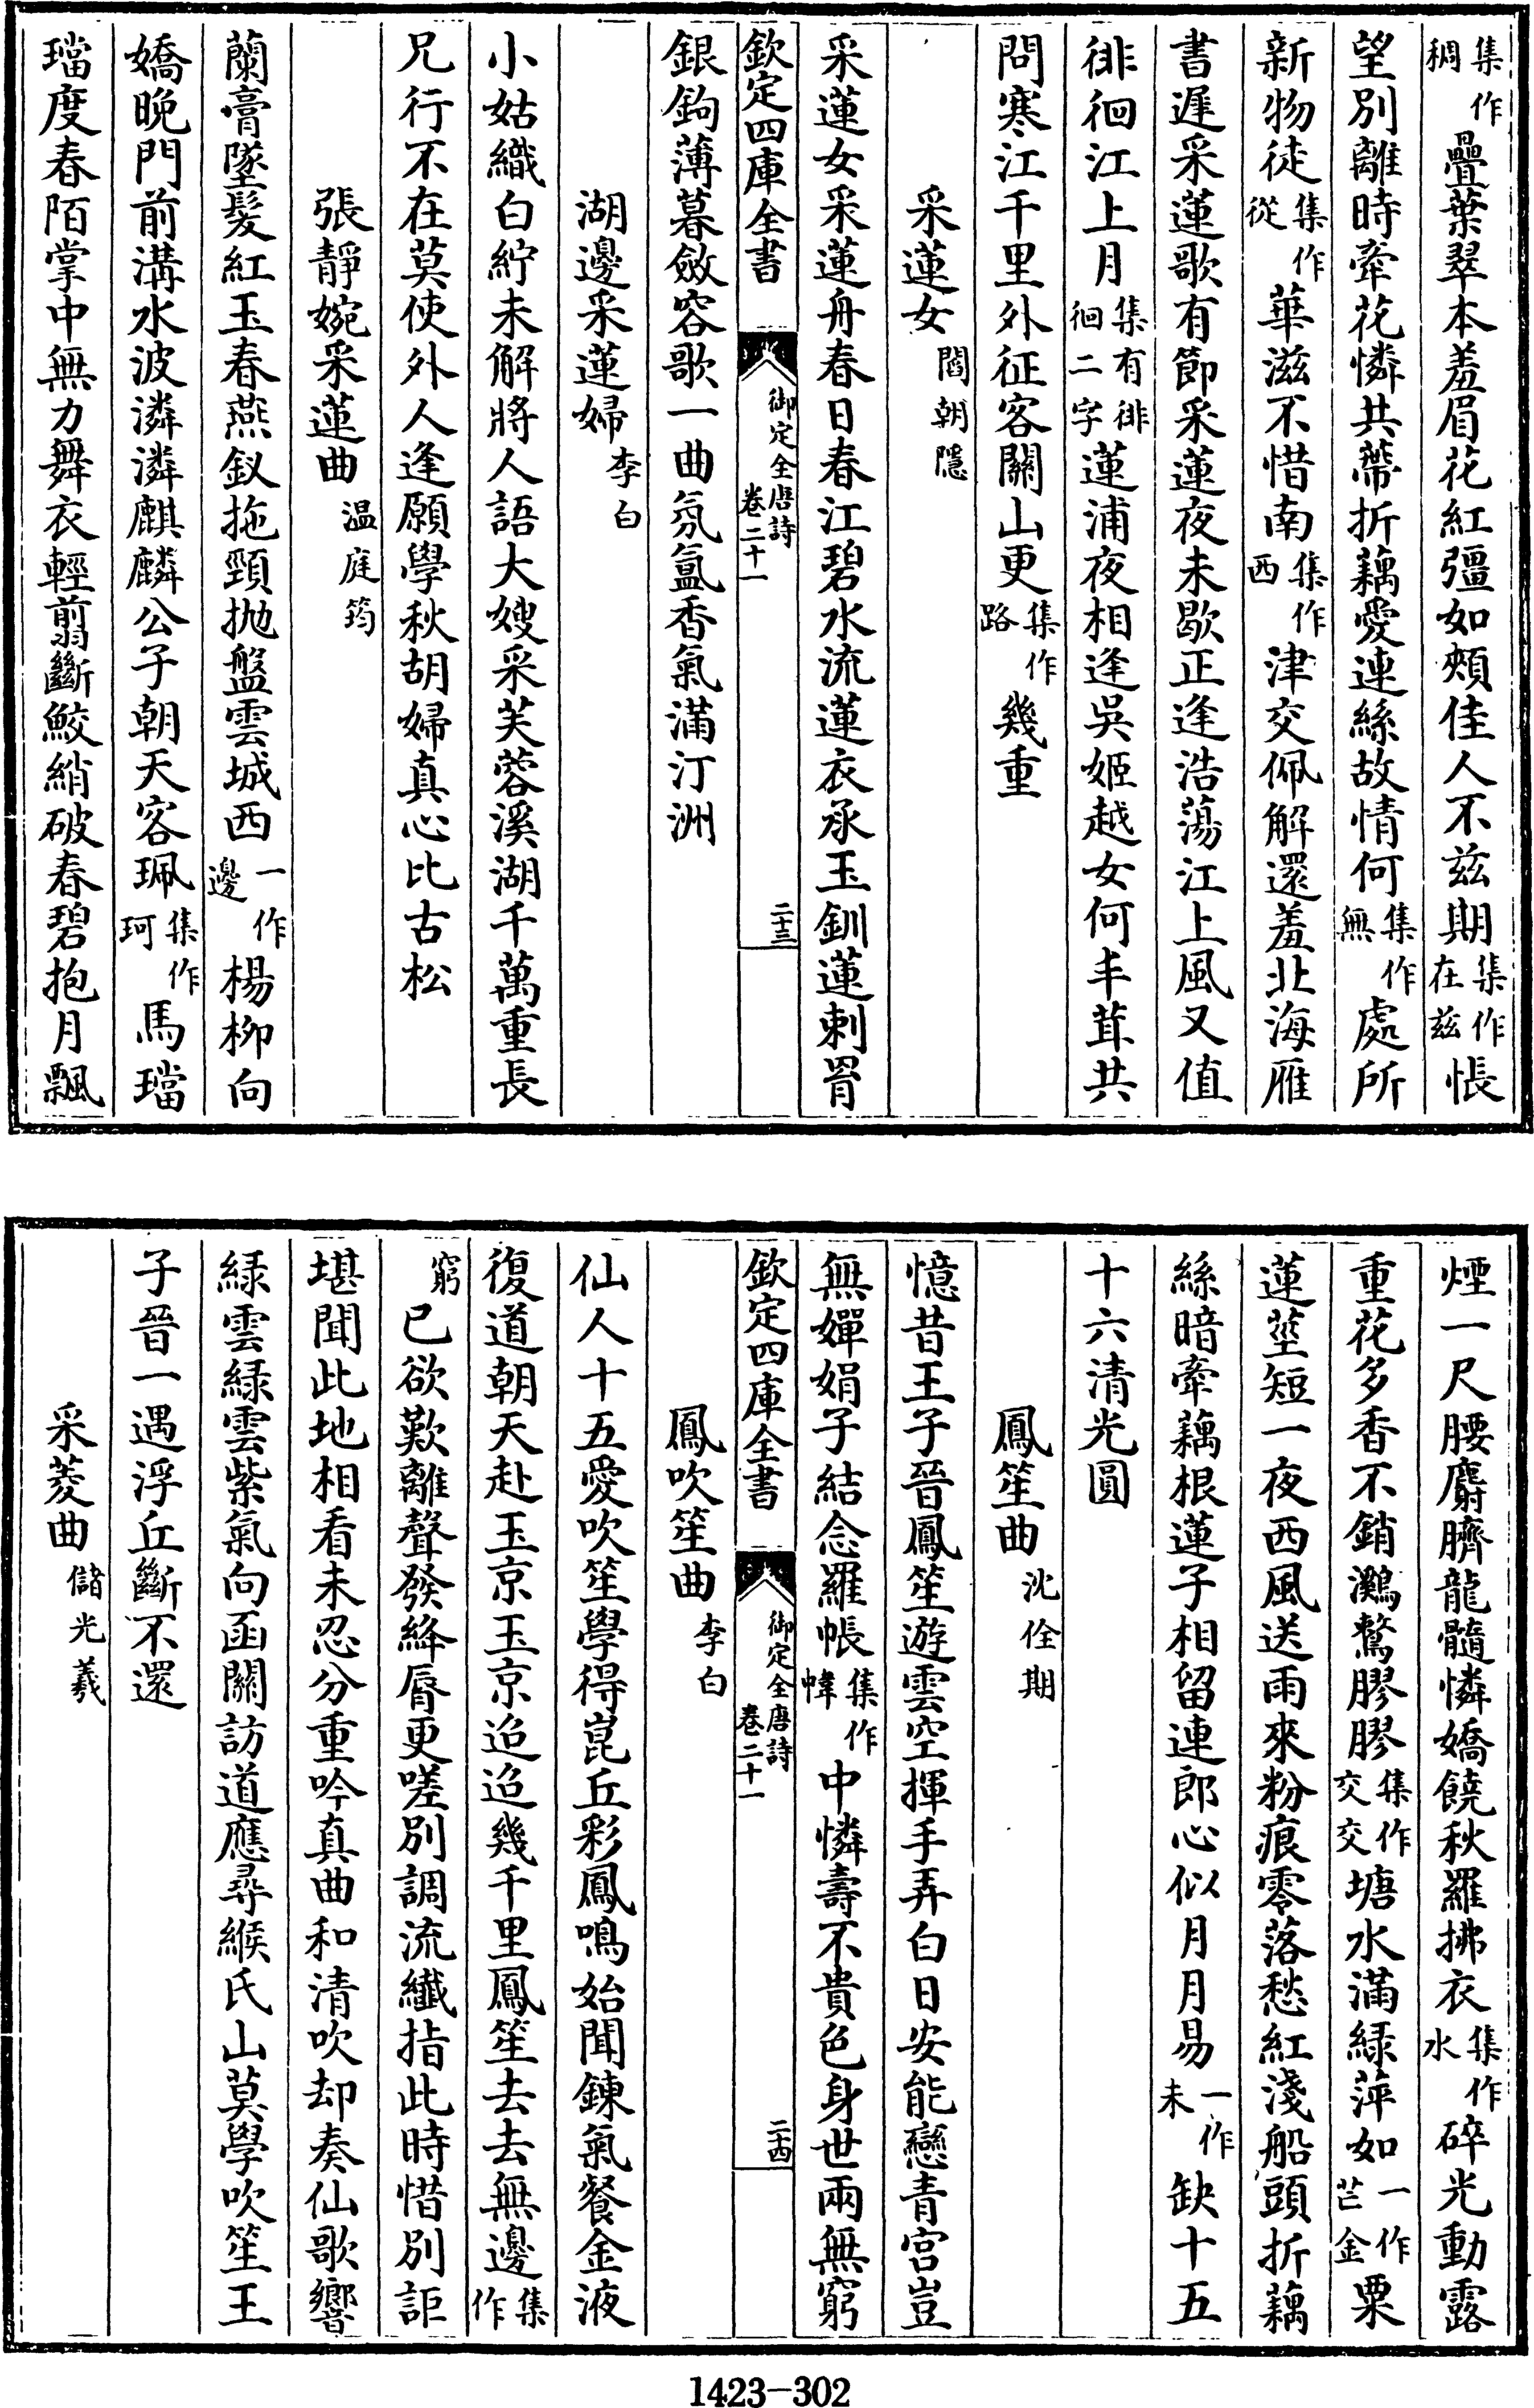 集作稠疊葉翠本羞眉花紅彊如頰佳人不兹期集作在兹悵
望別離時牽花憐共蔕折藕愛連絲故情何集作無處所
新物徒集作從華滋不惜南集作西津交佩解還羞北海雁
書遲采蓮歌有節采蓮夜未歇正逢浩蕩江上風又值
徘徊江上月集有徘徊二字蓮浦夜相逢吳姬越女何丰茸共
問寒江千里外征客關山更集作路幾重
采蓮女閻朝隱
采蓮女采蓮舟春日春江碧水流蓮衣承玉釧蓮刺罥
欽定四庫全書 御定全唐詩卷二十一 二十三
銀鉤薄暮斂容歌一曲氛氳香氣滿汀洲
湖邊采蓮婦李白
小姑織白紵未解將人語大嫂采芙蓉溪湖千萬重長
兄行不在莫使外人逢願學秋胡婦真心比古松
張靜婉采蓮曲温庭筠
蘭膏墜髮紅玉春燕釵拖頸抛盤雲城西一作邊楊柳向
嬌晚門前溝水波潾潾麒麟公子朝天客珮集作珂馬璫
璫度春陌掌中無力舞衣輕翦斷鮫綃破春碧抱月飄
煙一尺腰麝臍龍髓憐嬌饒秋羅拂衣集作水碎光動露
重花多香不銷鸂鶒膠膠集作交交塘水滿綠萍如一作芒金粟
蓮莖短一夜西風送雨來粉痕零落愁紅淺船頭折藕
絲暗牽藕根蓮子相留連郎心似月月易一作未缺十五
十六清光圓
鳳笙曲沈佺期
憶昔王子晉鳳笙遊雲空揮手弄白日安能戀青宮豈
無嬋娟子結念羅帳集作幃中憐壽不貴色身世兩無窮
欽定四庫全書 御定全唐詩卷二十一 二十四
鳳吹笙曲李白
仙人十五愛吹笙學得崑丘彩鳳鳴始聞鍊氣餐金液
復道朝天赴玉京玉京迢迢幾千里鳳笙去去無邊集作
窮已欲歎離聲發絳脣更嗟別調流纖指此時惜別詎
堪聞此地相看未忍分重吟真曲和清吹却奏仙歌響
緑雲緑雲紫氣向函關訪道應尋緱氏山莫學吹笙王
子晉一遇浮丘斷不還
采菱曲儲光羲
1423-302